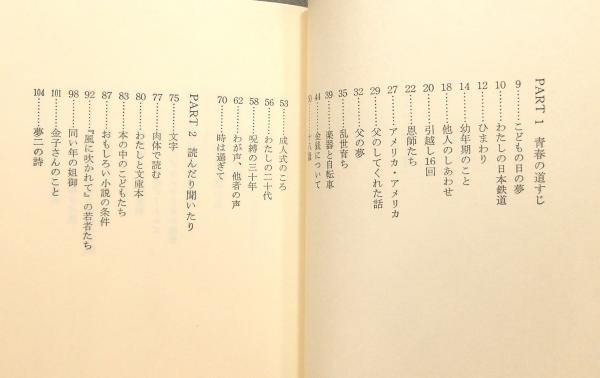 PART 1 青春の道すじ
9……こどもの日の夢
10……わたしの日本鉄道
12……ひまわり
14……幼年期のこと
18……他人のしあわせ
20……引越し16回
22……恩師たち
27……アメリカ・アメリカ
29……父のしてくれた話
32……父の夢
35……乱世育ち
39……楽器と自転車
44……金銭について
53……成人式のころ
56……わたしの二十代
58……呪縛の三十年
62……わが声、他者の声
70……時は過ぎて
PART 2 読んだり聞いたり
75……文字
77……肉体で読む
80……わたしと文庫本
83……本の中のこどもたち
87……おもしろい小説の条件
92……『風に吹かれて』の若者たち
98……同い年の姐御
101……金子さんのこと
104……夢二の詩